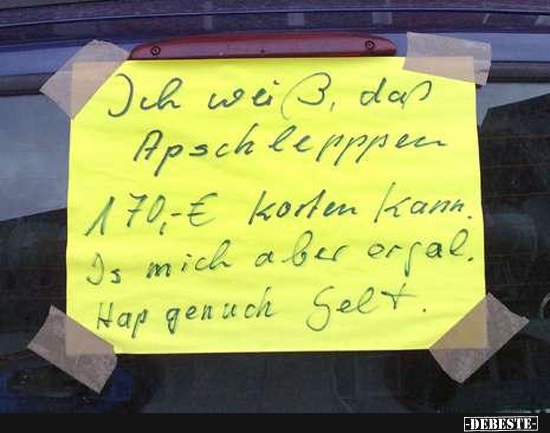 Ich weiß, daß
Apschlepppen
170,-€ kosten kann.
Is mich aber ergal.
Hap genuch Gelt.
-DEBESTE-